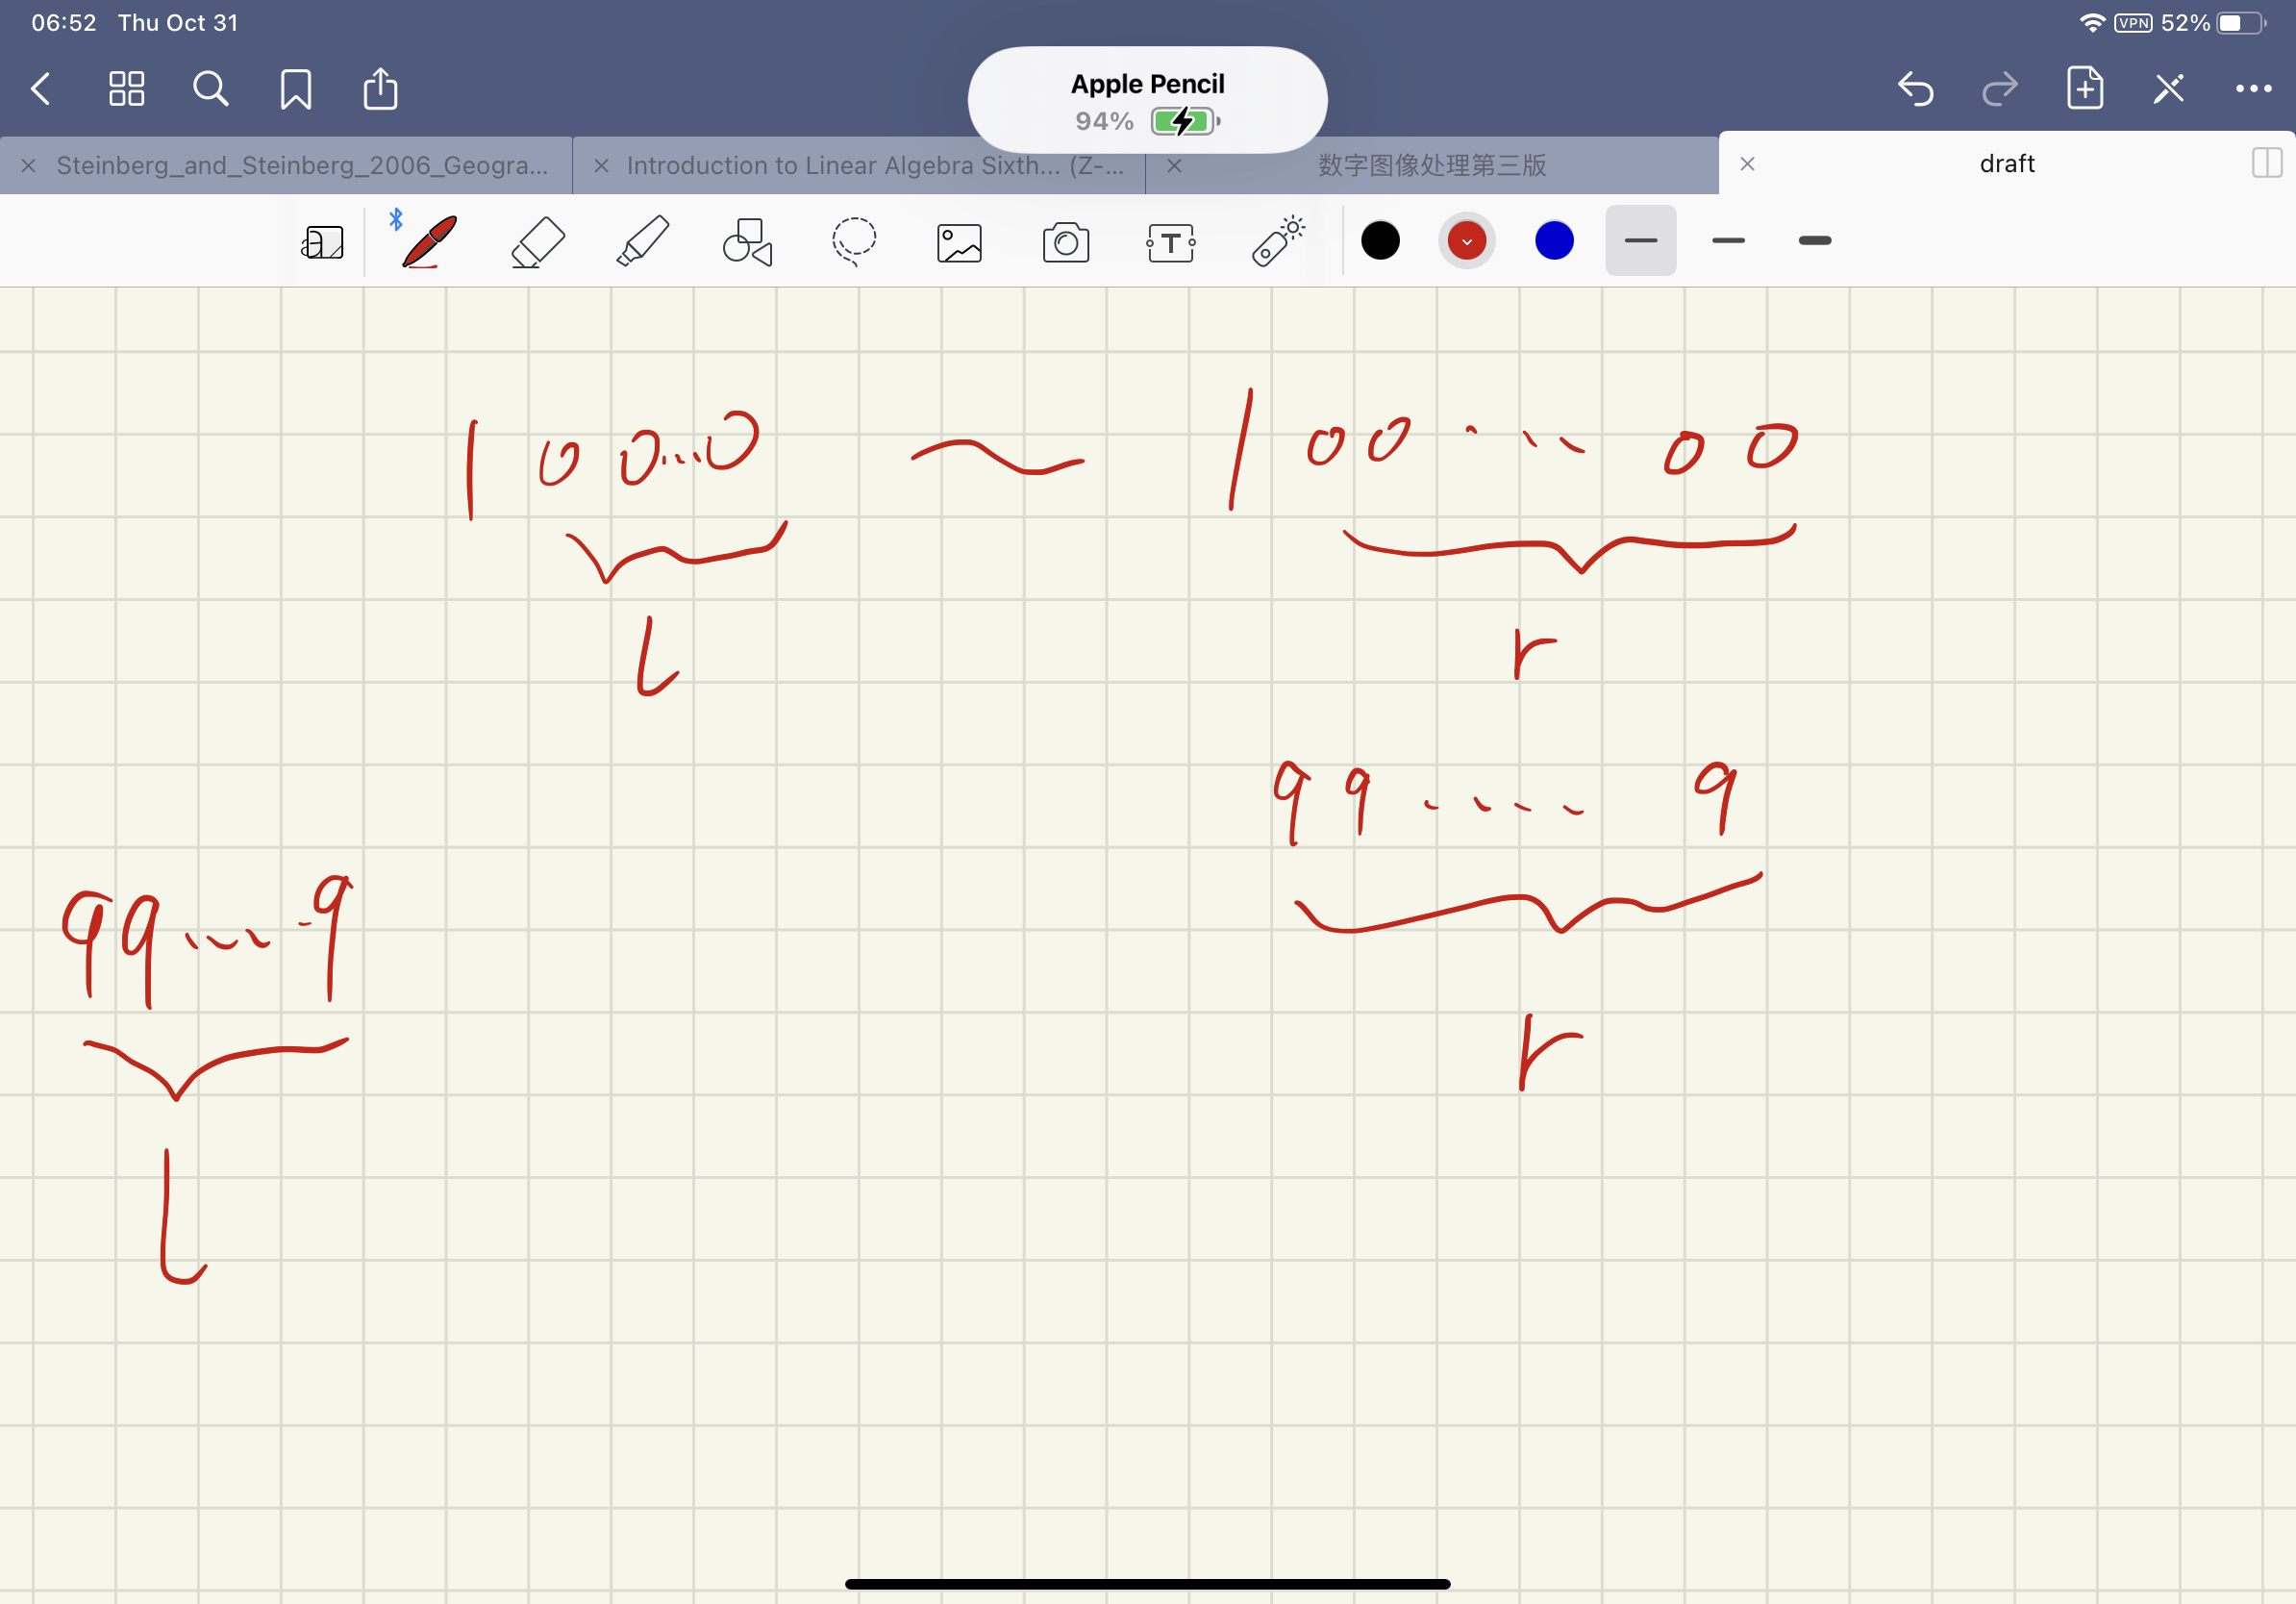 06:52 Thu Oct 31 VPN 52%
Apple Pencil
94%
Steinberg_and_Steinberg_2006_Geogra... Introduction to Linear Algebra Sixth... (Z-... 数字图像处理第三版 draft
T
1 0 0...0 ~ 1 0 0 ... 0 0
l r
9 9 .... 9
9 9 .... 9
r
l